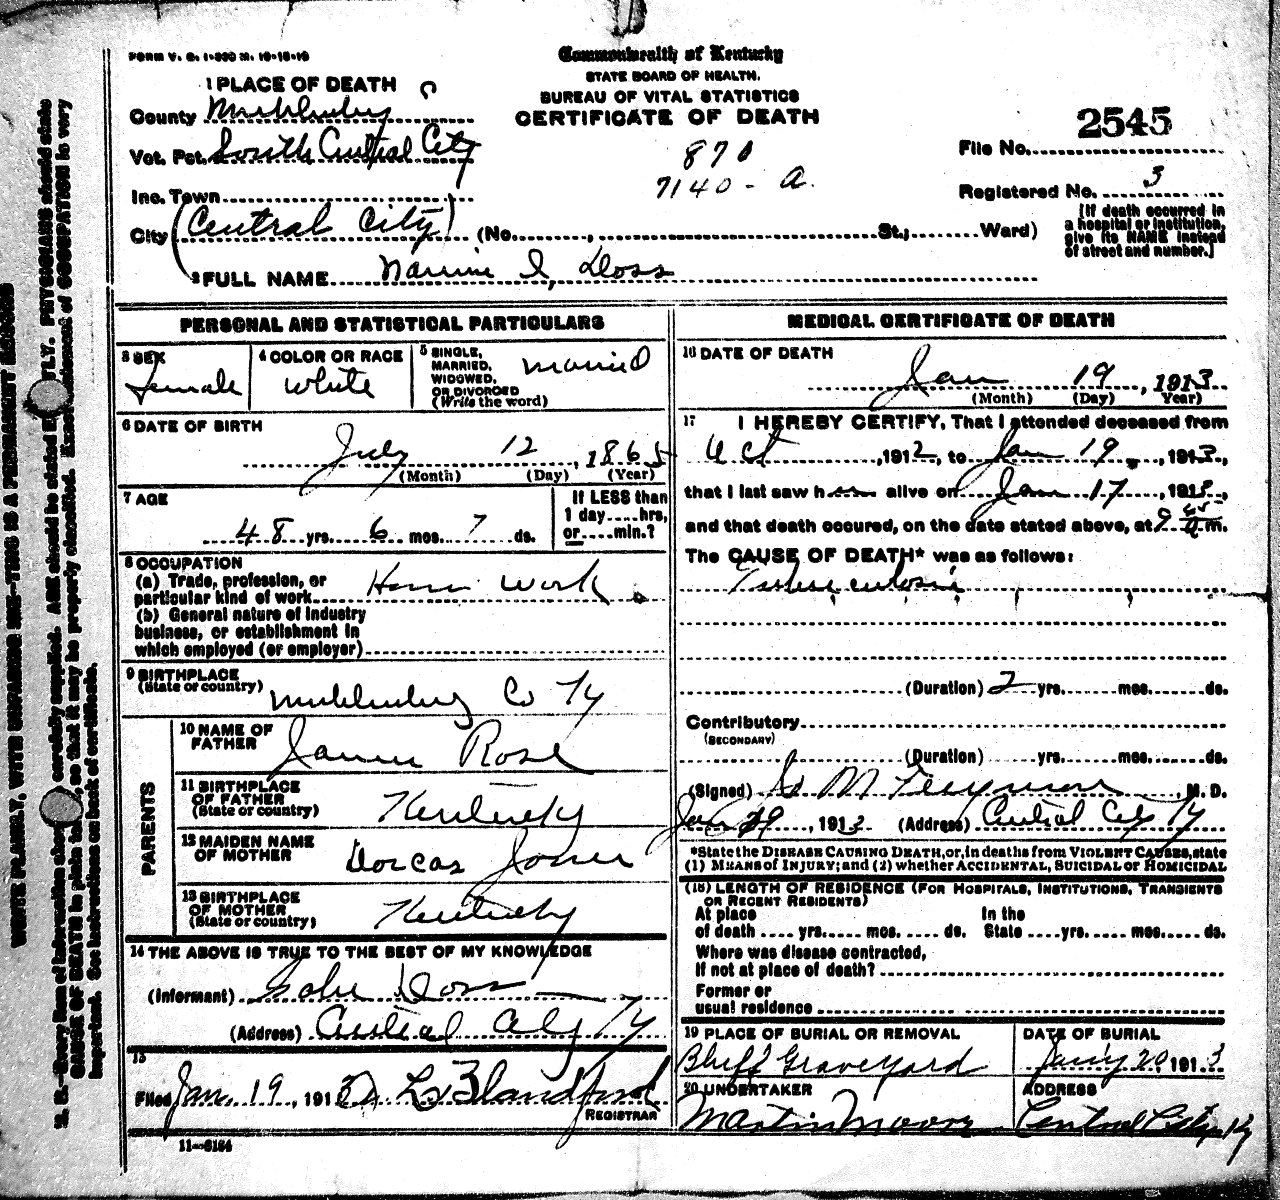 FORM V. S. 1-330 M. 10-15-10
Commonwealth of Kentucky
STATE BOARD OF HEALTH.
BUREAU OF VITAL STATISTICS
CERTIFICATE OF DEATH
1 PLACE OF DEATH
County Muhlenberg
Vot. Pct. South Central City
Inc. Town
City (Central City) (No. , St.; Ward)
870
7140-a.
2545
File No.
Registered No. 3
[If death occurred in a hospital or institution, give its NAME instead of street and number.]
2 FULL NAME Nannie I, Doss
PERSONAL AND STATISTICAL PARTICULARS
3 SEX female
4 COLOR OR RACE white
5 SINGLE, MARRIED, WIDOWED, OR DIVORCED (Write the word) married
6 DATE OF BIRTH
July 12, 1865
(Month) (Day) (Year)
7 AGE
48 yrs. 6 mos. 7 ds.
If LESS than 1 day....hrs, or....min.?
8 OCCUPATION
(a) Trade, profession, or particular kind of work Home work
(b) General nature of industry business, or establishment in which employed (or employer)
9 BIRTHPLACE (State or country) Muhlenberg Co Ky
PARENTS
10 NAME OF FATHER James Rose
11 BIRTHPLACE OF FATHER (State or country) Kentucky
12 MAIDEN NAME OF MOTHER Dorcas Jones
13 BIRTHPLACE OF MOTHER (State or country) Kentucky
14 THE ABOVE IS TRUE TO THE BEST OF MY KNOWLEDGE
(Informant) Gabe Doss
(Address) Central City Ky
15
Filed Jan. 19, 1913 L. Blandford
REGISTRAR
11-6184
MEDICAL CERTIFICATE OF DEATH
16 DATE OF DEATH
Jan 19, 1913
(Month) (Day) Year)
17 I HEREBY CERTIFY, That I attended deceased from
Oct, 1912, to Jan 19, 1913,
that I last saw her alive on Jan 17, 1913,
and that death occured, on the date stated above, at 9 45 a m.
The CAUSE OF DEATH* was as follows:
Tuberculosis
(Duration) 2 yrs. mos. ds.
Contributory
(SECONDARY)
(Duration) yrs. mos. ds.
(Signed) M. D.
Jan 29, 1913 (Address) Central City Ky
*State the DISEASE CAUSING DEATH, or, in deaths from VIOLENT CAUSES, state
(1) MEANS OF INJURY; and (2) whether ACCIDENTAL, SUICIDAL OR HOMICIDAL
(18) LENGTH OF RESIDENCE (FOR HOSPITALS, INSTITUTIONS, TRANSIENTS OR RECENT RESIDENTS)
At place of death .... yrs. .... mos. .... ds. In the State .... yrs. .... mos. .... ds.
Where was disease contracted,
If not at place of death?
Former or
usual residence
19 PLACE OF BURIAL OR REMOVAL
Bluff Graveyard
DATE OF BURIAL
Jany 20, 1913
20 UNDERTAKER
Martin Moore
ADDRESS
Central City Ky
WRITE PLAINLY, WITH UNFADING INK—THIS IS A PERMANENT RECORD
N. B.—Every item of information should be carefully supplied. AGE should be stated EXACTLY. PHYSICIANS should state
CAUSE OF DEATH in plain terms, so that it may be properly classified. Exact statement of OCCUPATION is very
important. See instructions on back of certificate.